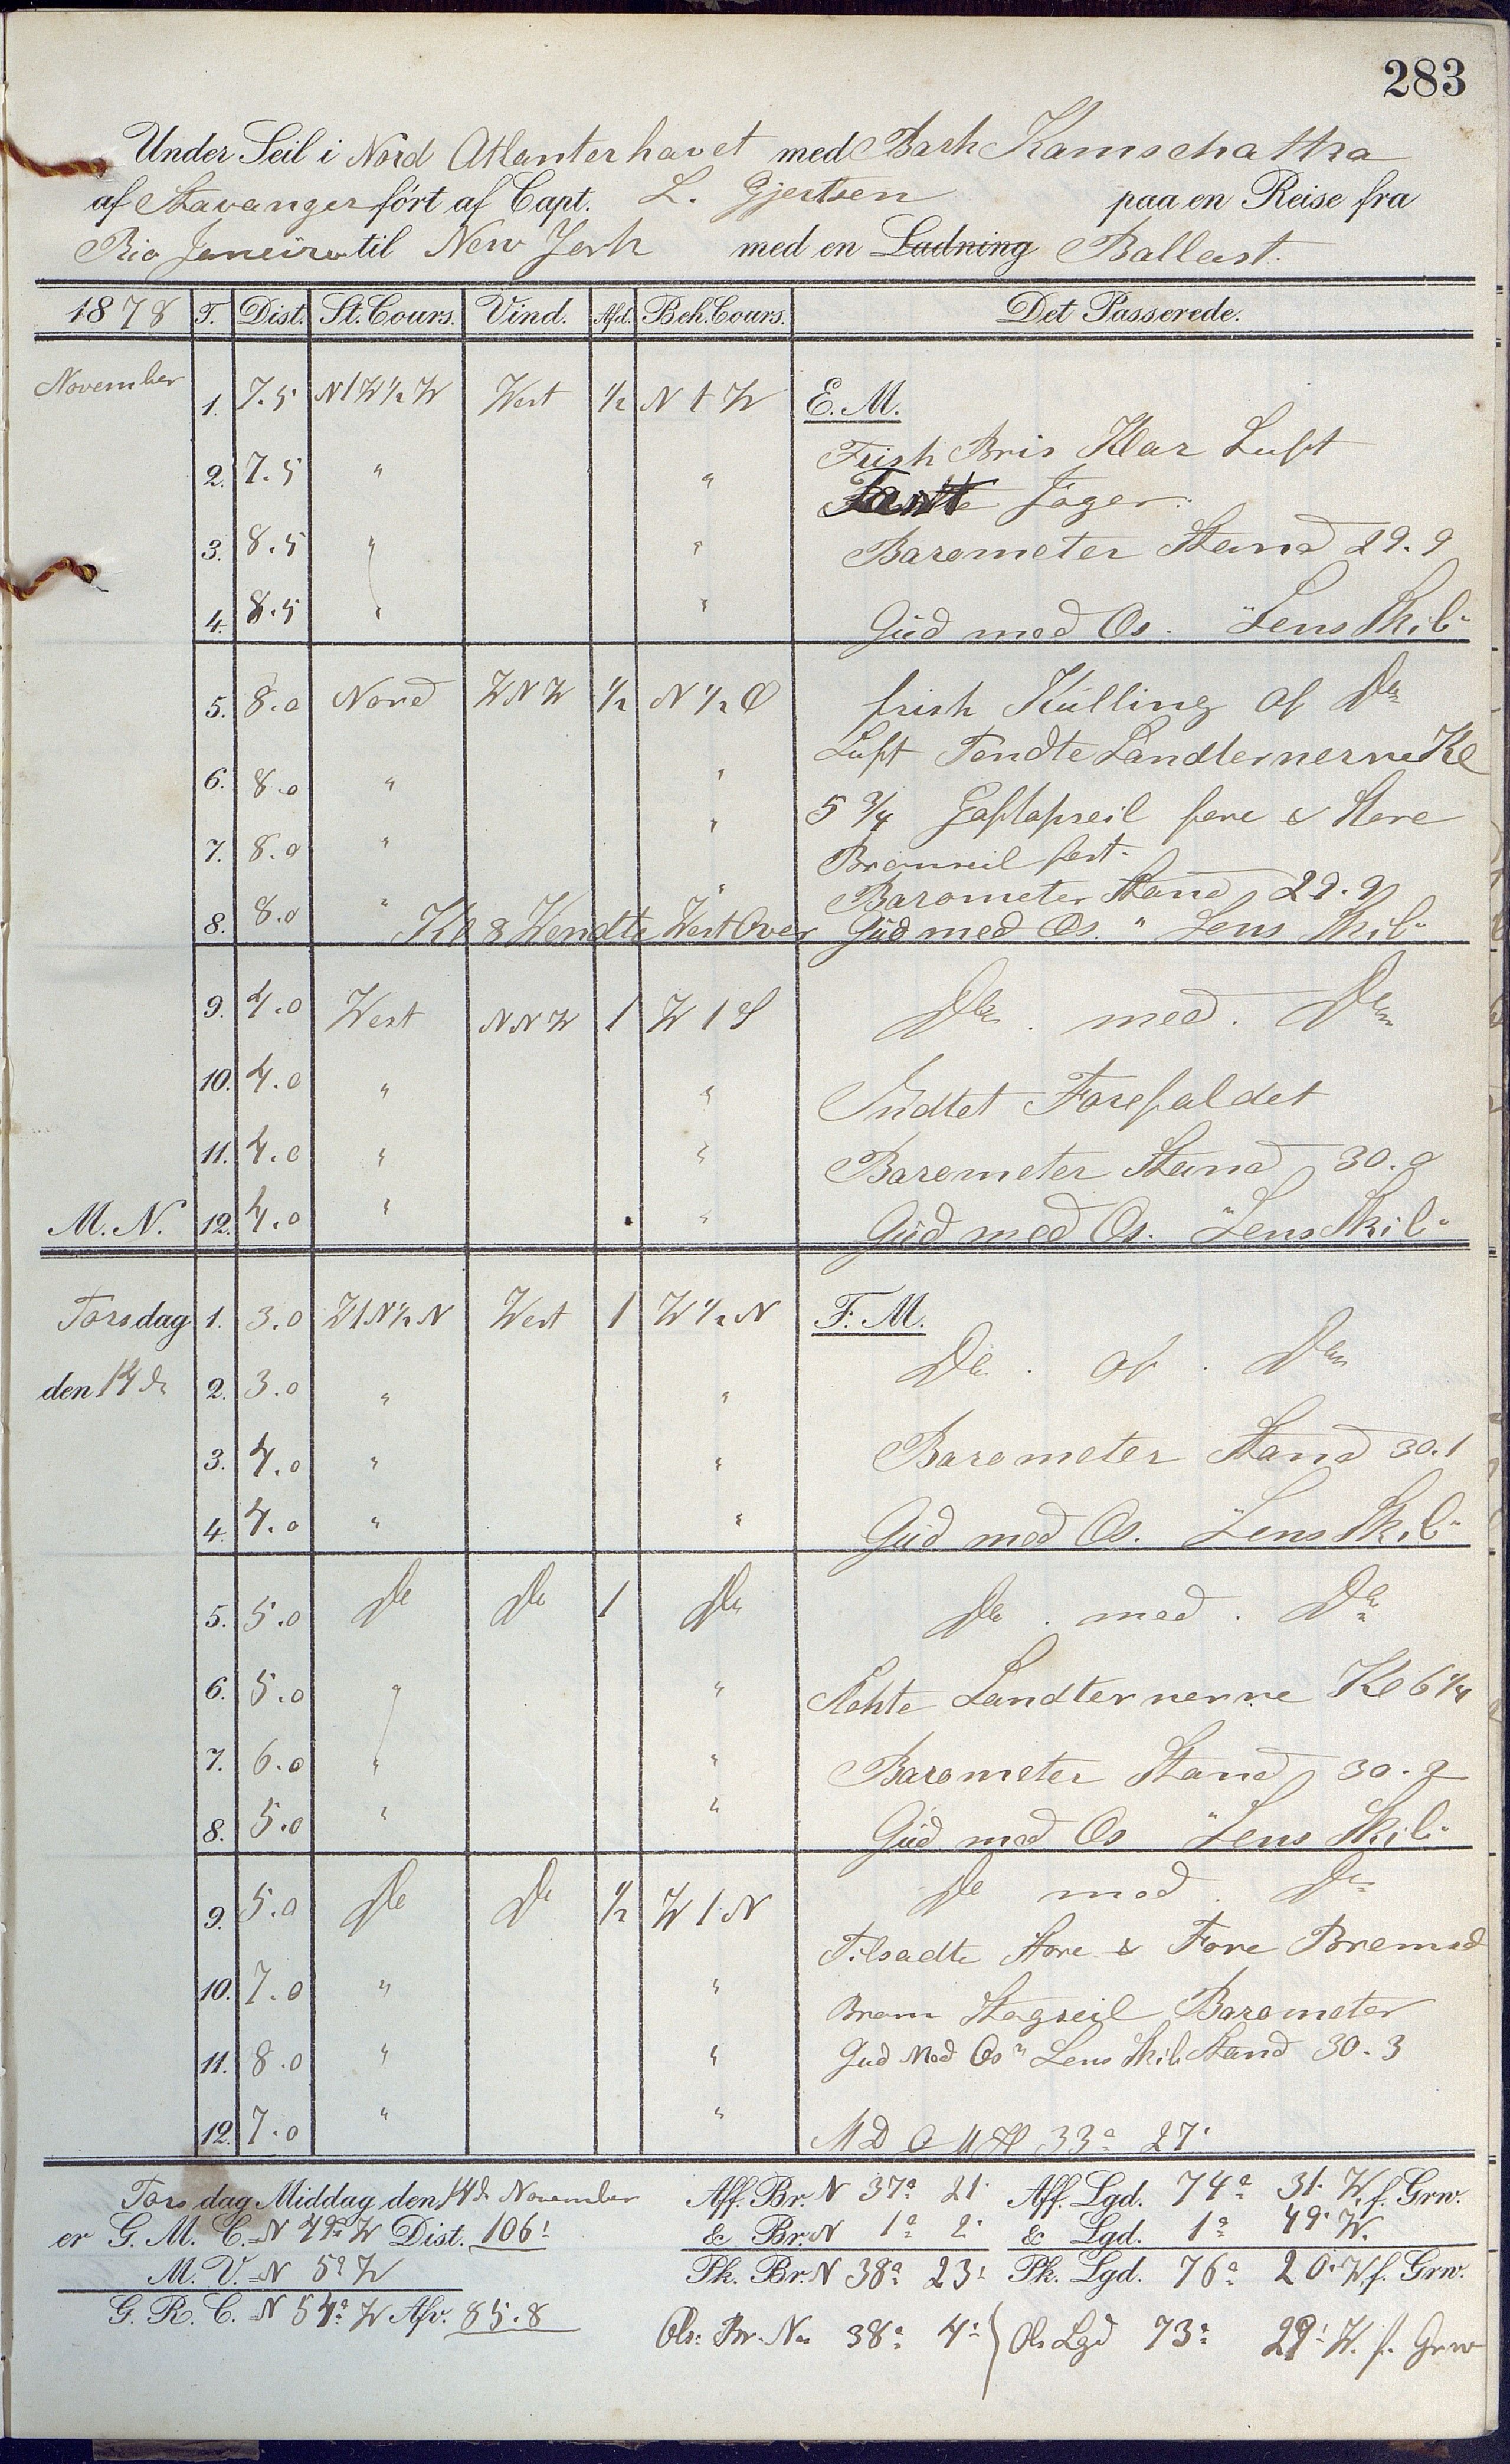 283
Under Seil i Nord Atlanterhavet med Bark Kamschatka
af Stavanger ført af Capt. L. Gjertsen paa en Reise fra
Rio Janeiro til New York med en Ladning Ballast.
1878 T. Dist. St. Cours. Vind. Afd. Beh. Cours. Det Passerede.
November 1. 7.5 N t W ½ W West ½ N t W E. M.
Frisk Bris Klar Luft
2. 7.5 " "
Jager.
3. 8.5 " " Barometer Stand 29.9
4. 8.5 " " Gud med Os. "Lens Skib"
5. 8.0 Nord WNW ½ N ½ O frisk Kulling af Do
Luft Tendte Landternerne Kl
6. 8.0 " "
5 ¾ Gaftopseil fore & Store
7. 8.0 " "
Bramseil fast.
Barometer Stand 29.9
8. 8.0 " Kl 8 Vendte West Over " Gud med Os. "Lens Skib"
9. 4.0 West NNW 1 W t S Do. med. Do
10. 4.0 " " Indtet Forefaldet
11. 4.0 " " Barometer Stand 30.0
M. N. 12. 4.0 " " Gud med Os. "Lens Skib"
Torsdag 1. 3.0 W t N ½ N West 1 W ½ N F. M.
Do. af. Do
den 14de 2. 3.0 " "
3. 4.0 " " Barometer Stand 30.1
4. 4.0 " " Gud med Os. "Lens Skib"
5. 5.0 Do Do 1 Do Do. med. Do
6. 5.0 " " Slukte Landternerne Kl 6 ¼
7. 6.0 " " Barometer Stand 30.2
8. 5.0 " " Gud med Os "Lens Skib"
9. 5.0 Do Do ½ W t N Do med. Do
Tilsadte Store & Fore Bramsel
10. 7.0 " "
Bram Stagseil Barometer
11. 8.0 " " Gud Med Os "Lens Skib Stand 30.3
12. 7.0 " " 33° 27'
Torsdag Middag den 14de November Aff. Br. N 37° 21' Aff. Lgd. 74° 31' W. f. Grw.
er G. M. C. N 49° W Dist. 106' & Br. N 1° 2' & Lgd. 1° 49' W.
M. V. N 5° W Pk. Br. N 38° 23' Pk. Lgd. 76° 20' W. f. Grw.
G. R. C. N 54° W Afv. 85.8
Obs. Br. N. 38° 4' Obs Lgd 73° 29' W. f. Grw